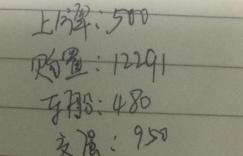 上牌：500
购置：12291
车船：480
交强：950